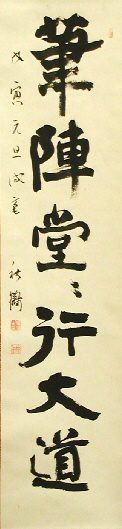 筆陣堂々行大道
戊寅元旦試毫 秋鶴